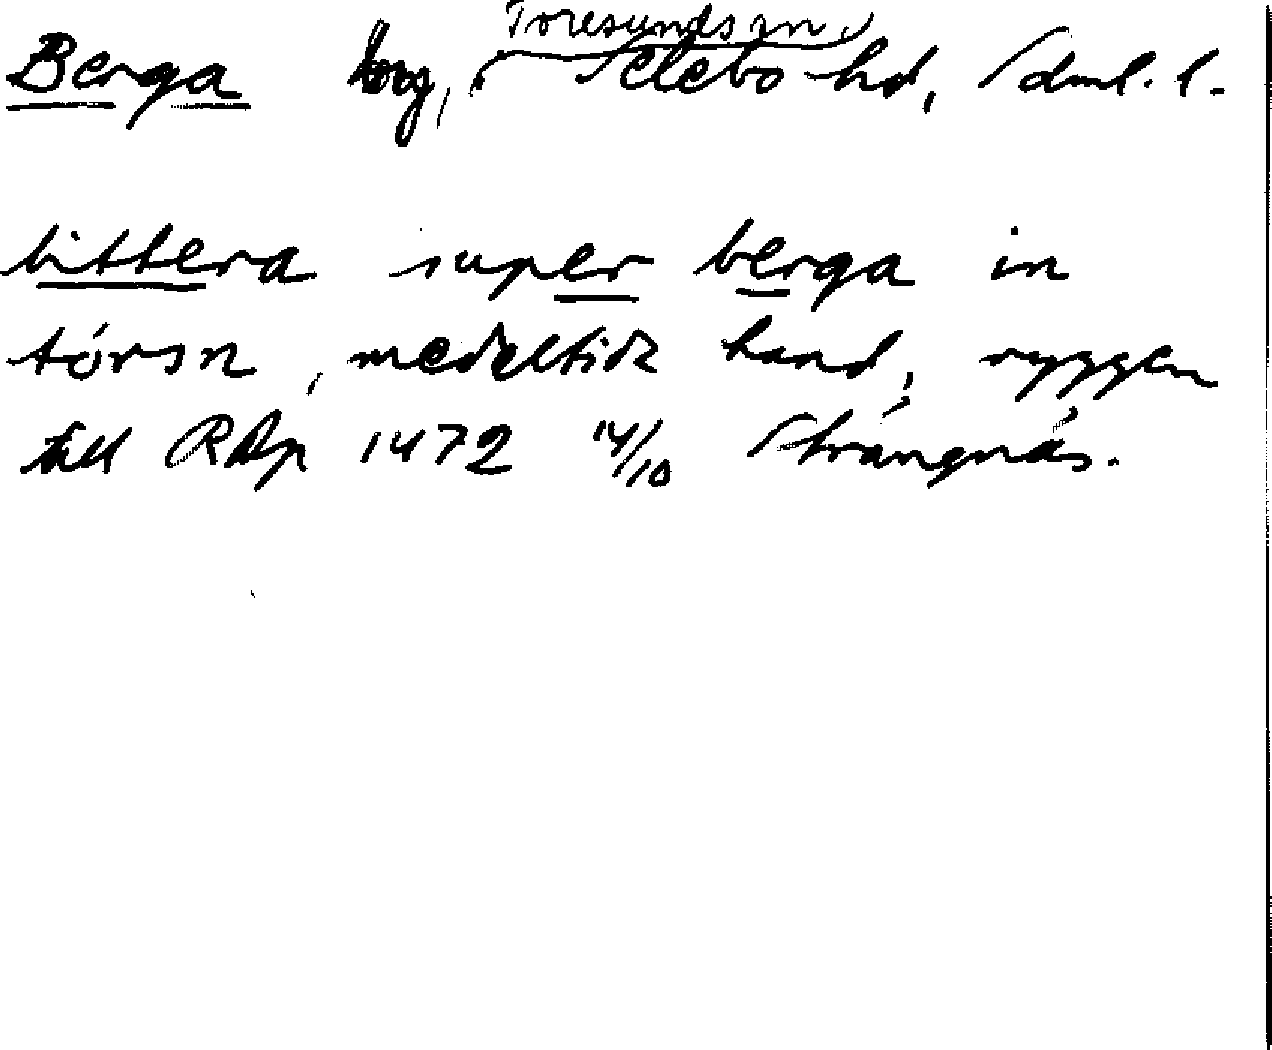 Toresunds sn,
Berga by, Selebo hd, Sdml. l.
littera super berga in
tórsn, medeltida hand, ryggen
till RAp 1472 14/10 Strängnäs.